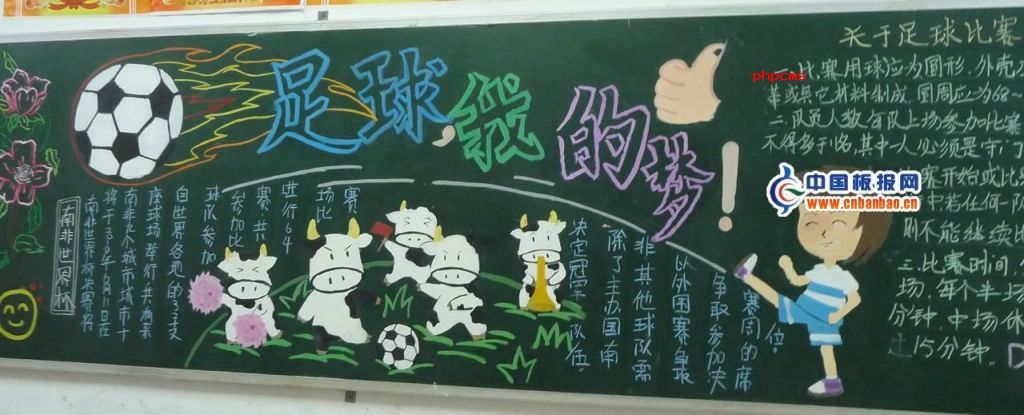 足球,我的梦!
南非世界杯
南非世界杯决赛将
南非九个城市城市十
座球场举行,共有来
自世界各地的32支
球队参加
参加比
赛,共
进行64
场比
赛
决定冠军队伍
除了主办国南
非其他球队需
争取参加决
赛周的席
位。
关于足球比赛
一、比赛用球应为圆形,外壳
革或其它材料制成,圆周应为68~
二、队员人数:每队上场参加比赛
不得多于
名,其中一人必须是守门
赛开始或比
中若任何一队
则不能继续比
三、比赛时间:
场,每个半场
分钟,中场休
15分钟.
phpcms
中国板报网
www.cnbanbao.cn